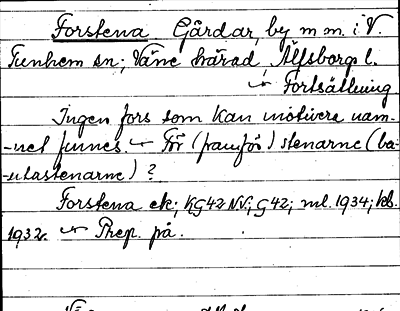 Forstena. Gårdar, by m m. i V.
Tunhem sn; Väne härad, Älfsborgs l.
Fortsättning.
Ingen fors som kan motivera nam-
-net finnes — För (framför) stenarne (ba-
-utastenarne)?
Forstena ek; KG42 NV; G42; ml. 1934; kb.
1932. — Prep. på.